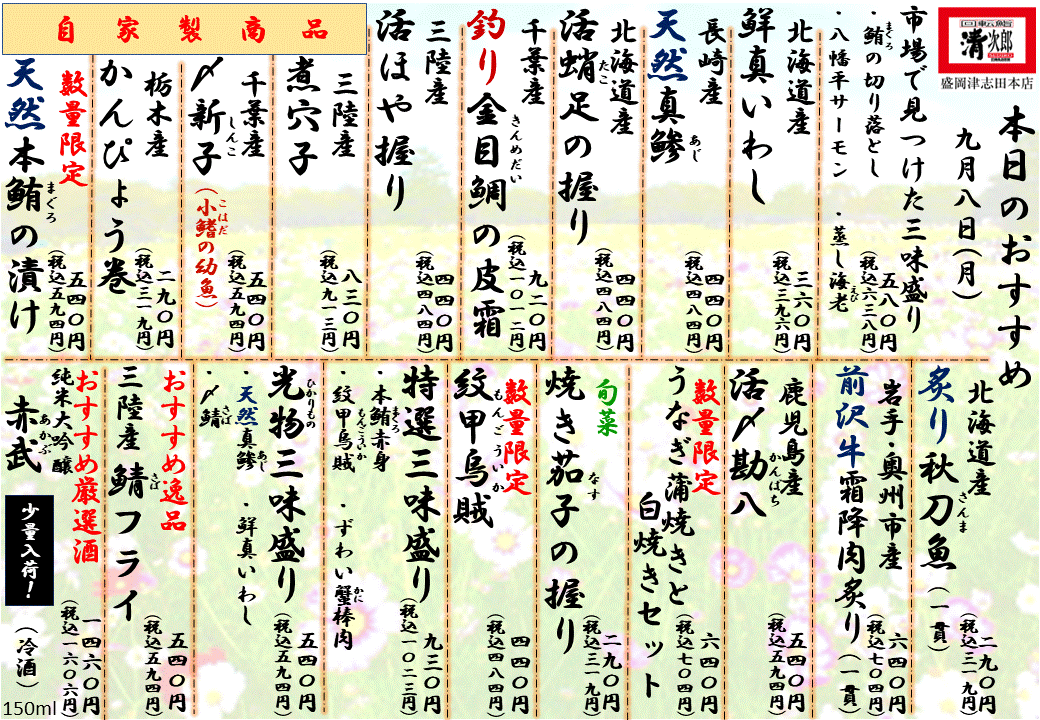 回転鮨
清次郎
盛岡津志田本店
本日のおすすめ
九月八日(月)
市場で見つけた三味盛り
・鮪の切り落とし
まぐろ
・八幡平サーモン
・蒸し海老
えび
五八〇円
(税込六三八円)
北海道産
鮮真いわし
三六〇円
(税込三九六円)
長崎産
天然真鯵
あじ
四四〇円
(税込四八四円)
北海道産
活蛸足の握り
たこ
四四〇円
(税込四八四円)
千葉産
釣り金目鯛の皮霜
きんめだい
九二〇円
(税込一〇一二円)
三陸産
活ほや握り
四四〇円
(税込四八四円)
三陸産
煮穴子
八三〇円
(税込九一三円)
自家製商品
千葉産
〆新子
しんこ
(小鰭の幼魚)
こはだ
五四〇円
(税込五九四円)
栃木産
かんぴょう巻
二九〇円
(税込三一九円)
数量限定
天然本鮪の漬け
まぐろ
五四〇円
(税込五九四円)
北海道産
炙り秋刀魚(一貫)
さんま
二九〇円
(税込三一九円)
岩手・奥州市産
前沢牛霜降肉炙り(一貫)
六四〇円
(税込七〇四円)
鹿児島産
活〆勘八
かんぱち
五四〇円
(税込五九四円)
数量限定
うなぎ蒲焼きと
白焼きセット
六四〇円
(税込七〇四円)
旬菜
焼き茄子の握り
なす
二九〇円
(税込三一九円)
数量限定
紋甲烏賊
もんごういか
四四〇円
(税込四八四円)
特選三味盛り
・本鮪赤身
まぐろ
・紋甲烏賊
もんごういか
・ずわい蟹棒肉
かに
九三〇円
(税込一〇二三円)
光物三味盛り
ひかりもの
・天然真鯵
あじ
・鮮真いわし
・〆鯖
さば
五四〇円
(税込五九四円)
おすすめ逸品
三陸産 鯖フライ
さば
五四〇円
(税込五九四円)
おすすめ厳選酒
純米大吟醸
赤武
あかぶ
少量入荷!
(冷酒)
一四六〇円
(税込一六〇六円)
150ml